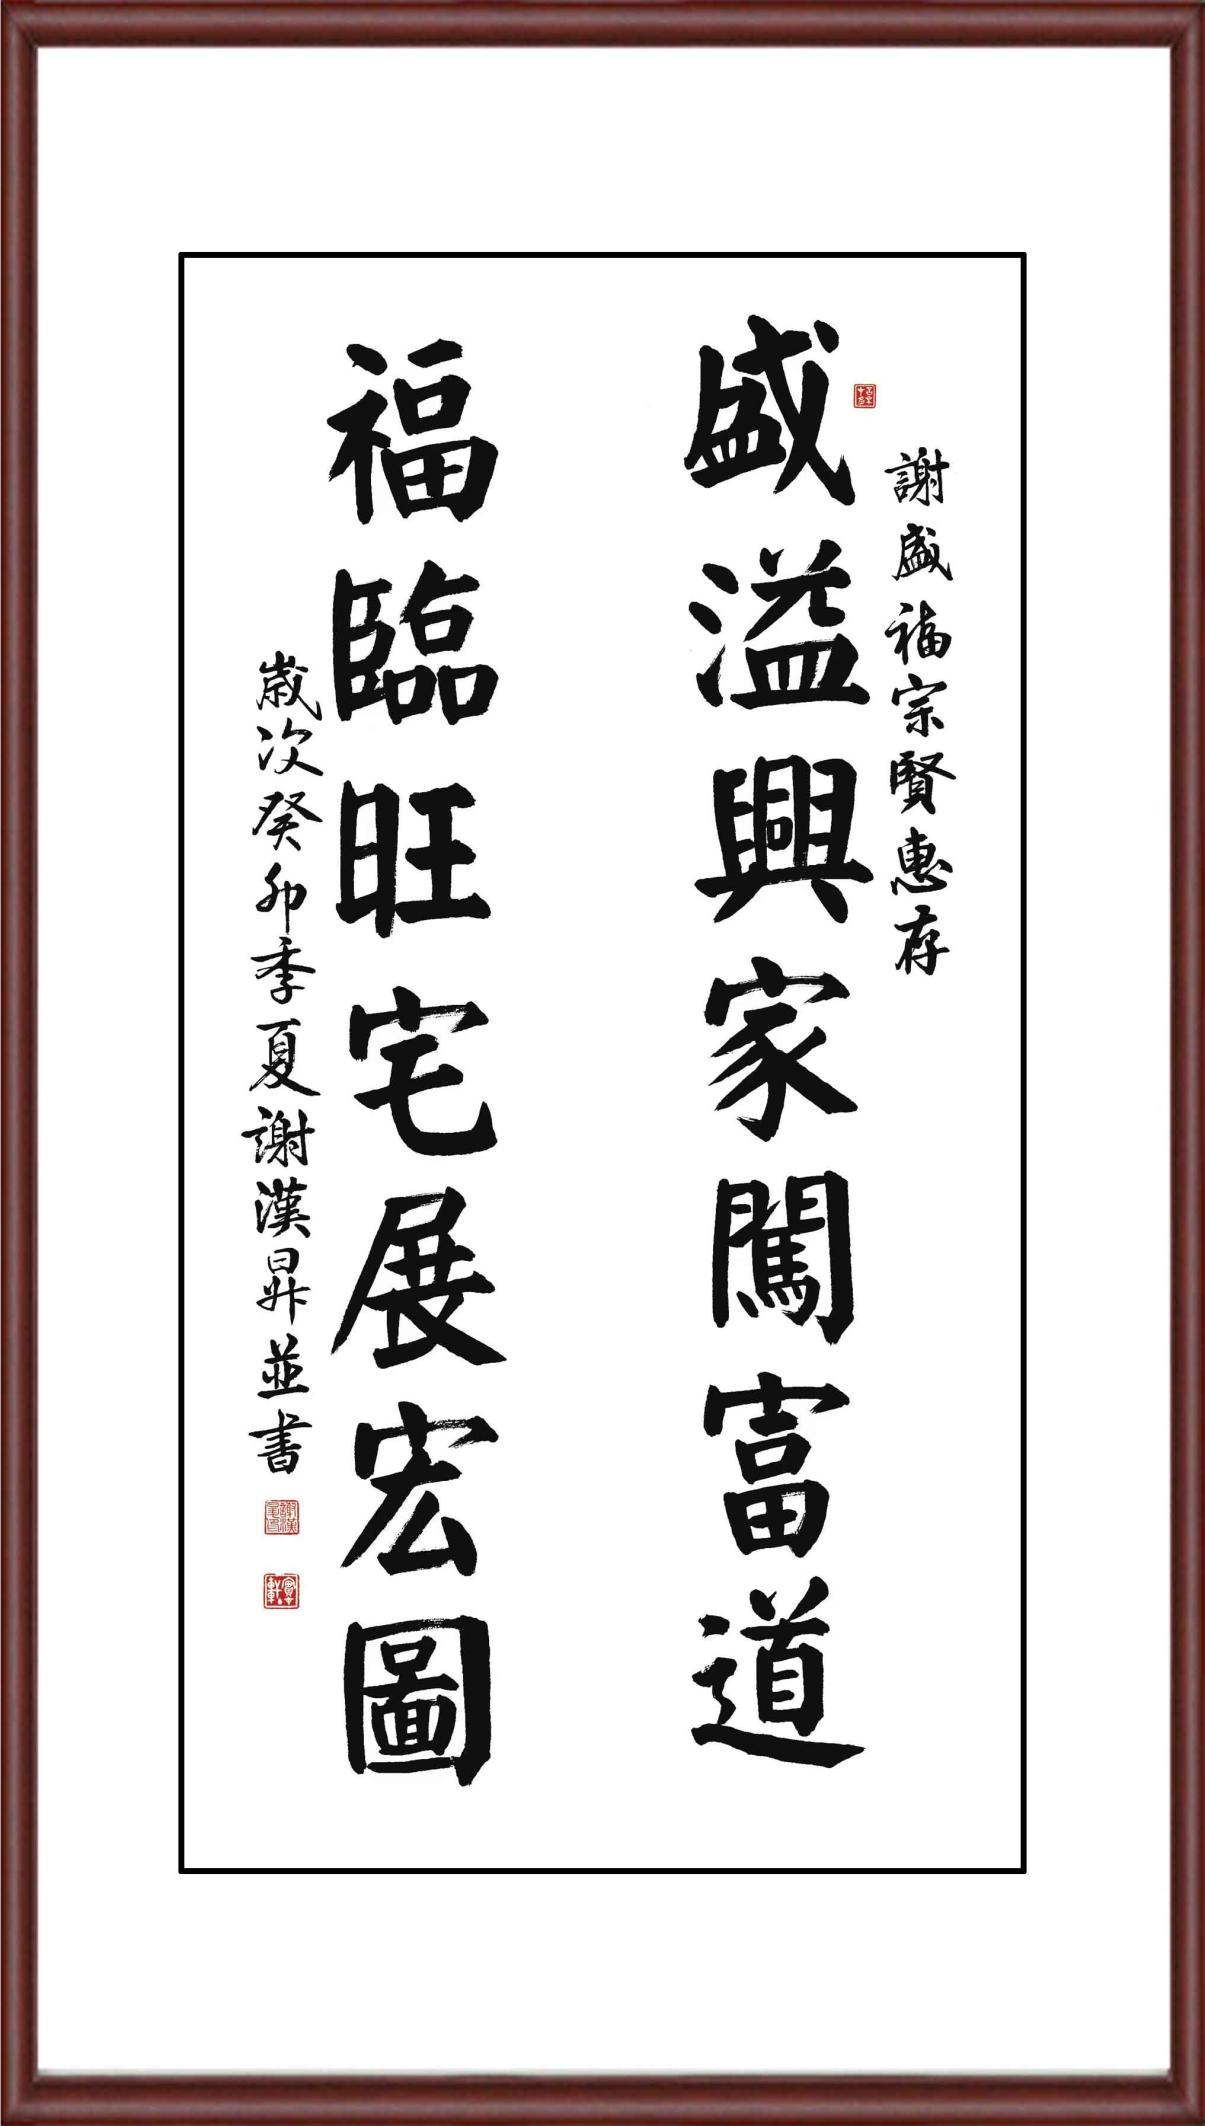 謝盛福宗賢惠存
盛溢興家闖富道
福臨旺宅展宏圖
歲次癸卯季夏謝漢昇並書